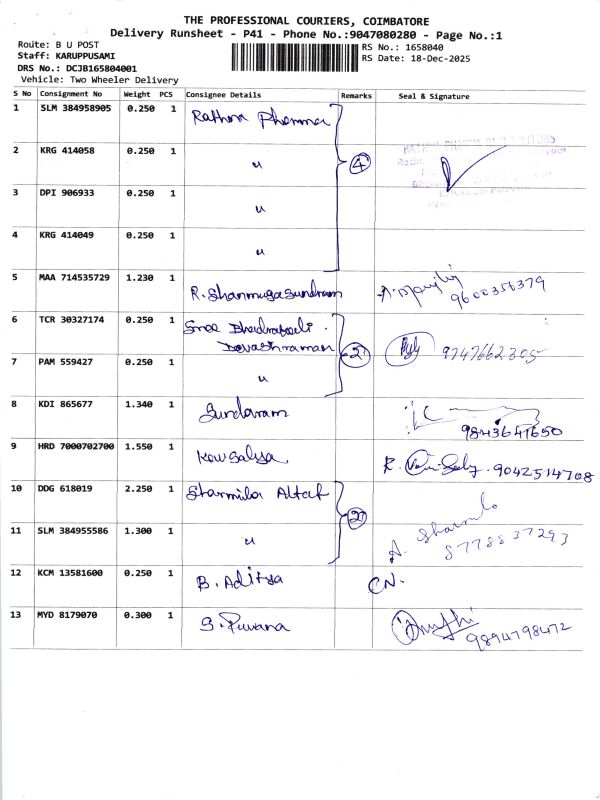 THE PROFESSIONAL COURIERS, COIMBATORE
Delivery Runsheet - P41 - Phone No.:9047080280 - Page No.:1
Route: B U POST
Staff: KARUPPUSAMI
DRS No.: DCJB165804001
Vehicle: Two Wheeler Delivery
RS No.: 1658040
RS Date: 18-Dec-2025
S No Consignment No Weight PCS Consignee Details Remarks Seal & Signature
1 SLM 384958905 0.250 1 Rathna Pharma
2 KRG 414058 0.250 1 " 4
3 DPI 906933 0.250 1 "
4 KRG 414049 0.250 1 "
5 MAA 714535729 1.230 1 R. Shanmugasundram 9600356379
6 TCR 30327174 0.250 1 Sree Bhadrakali
Devashraman 2 9747662305
7 PAM 559427 0.250 1 "
8 KDI 865677 1.340 1 Sundaram 9843641650
9 HRD 7000702700 1.550 1 Kowsalya R. 9042514708
10 DDG 618019 2.250 1 Sharmila Altaf 2
11 SLM 384955586 1.300 1 " A. Sharmila
8778837293
12 KCM 13581600 0.250 1 B. Aditya CN.
13 MYD 8179070 0.300 1 S. Puvana 9894798472